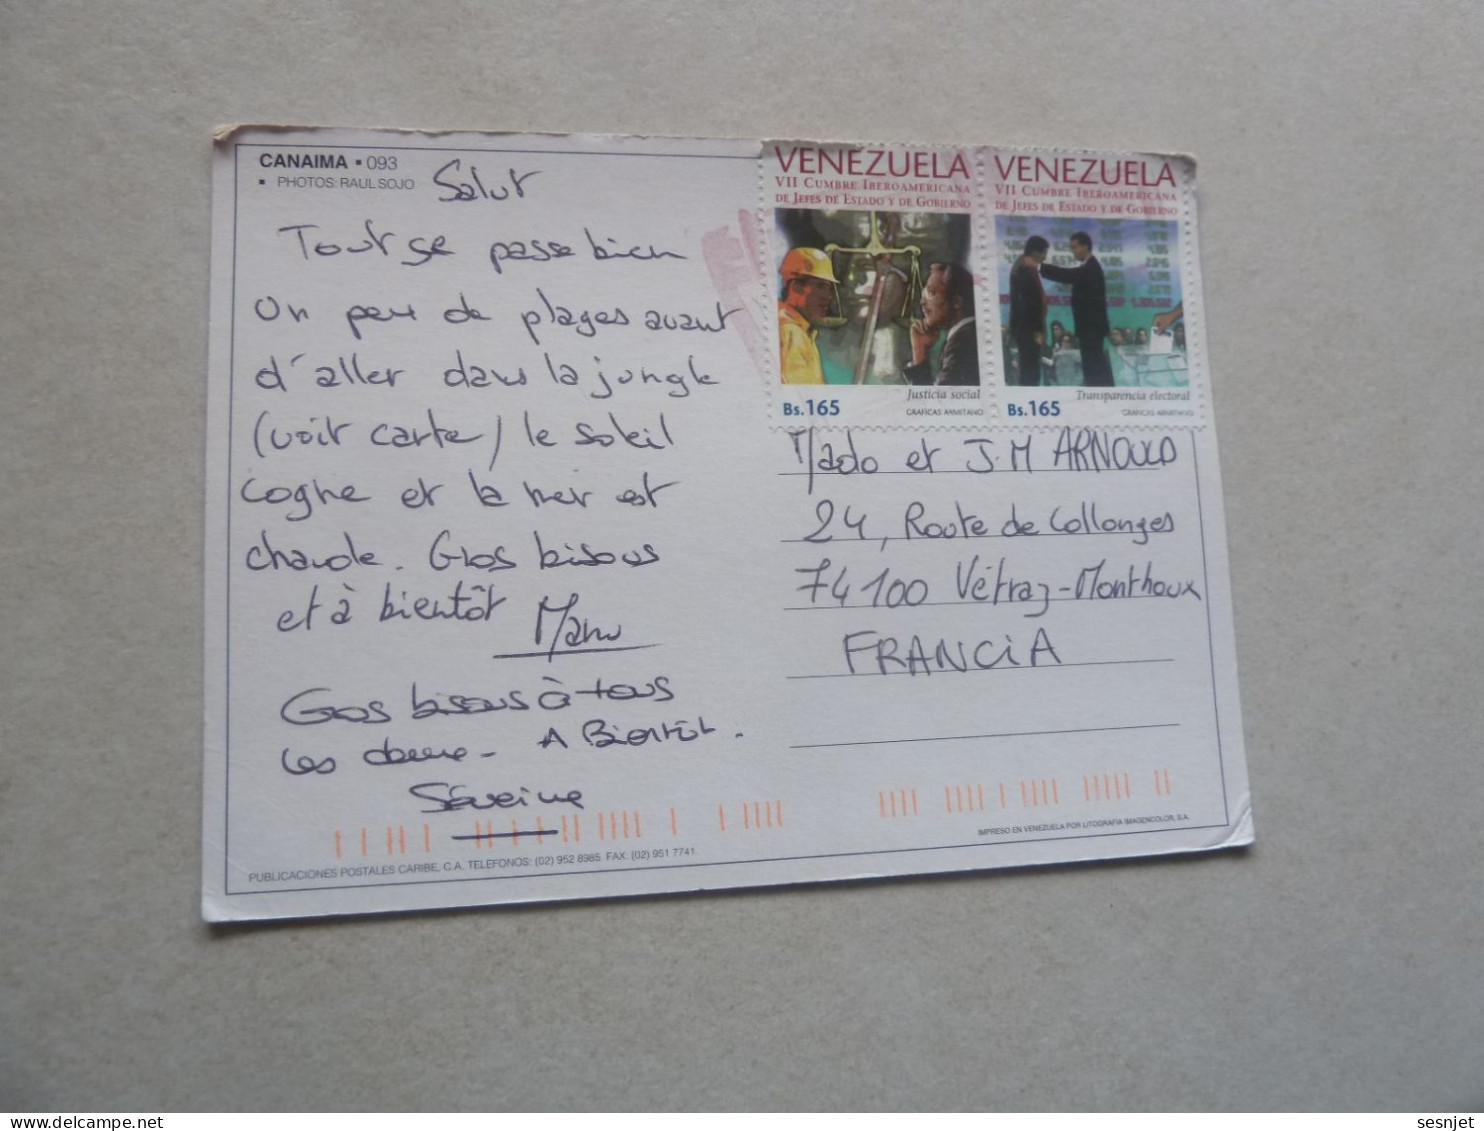 CANAIMA ▪ 093
▪ PHOTOS: RAUL SOJO
Salut
Tout se passe bien
Un peu de plages avant
d'aller dans la jungle
(voir carte) le soleil
cogne et la mer est
chaude. Gros bisous
et à bientôt
Manu
Gros bisous à tous
les deux - A Bientôt.
Séverine
PUBLICACIONES POSTALES CARIBE, C.A. TELEFONOS: (02) 952 8985. FAX: (02) 951 7741.
VENEZUELA
VII CUMBRE IBEROAMERICANA
DE JEFES DE ESTADO Y DE GOBIERNO
Justicia social
Bs.165
GRAFICAS ARMITANO
VENEZUELA
VII CUMBRE IBEROAMERICANA
DE JEFES DE ESTADO Y DE GOBIERNO
Transparencia electoral
Bs.165
GRAFICAS ARMITANO
Mado et J.M ARNOULD
24, Route de Collonges
74100 Vétraz-Monthoux
FRANCIA
IMPRESO EN VENEZUELA POR LITOGRAFIA IMAGENCOLOR, S.A.
sesnjet